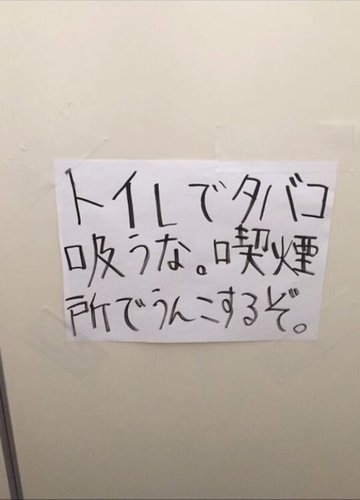 トイレでタバコ
吸うな。喫煙
所でうんこするぞ。